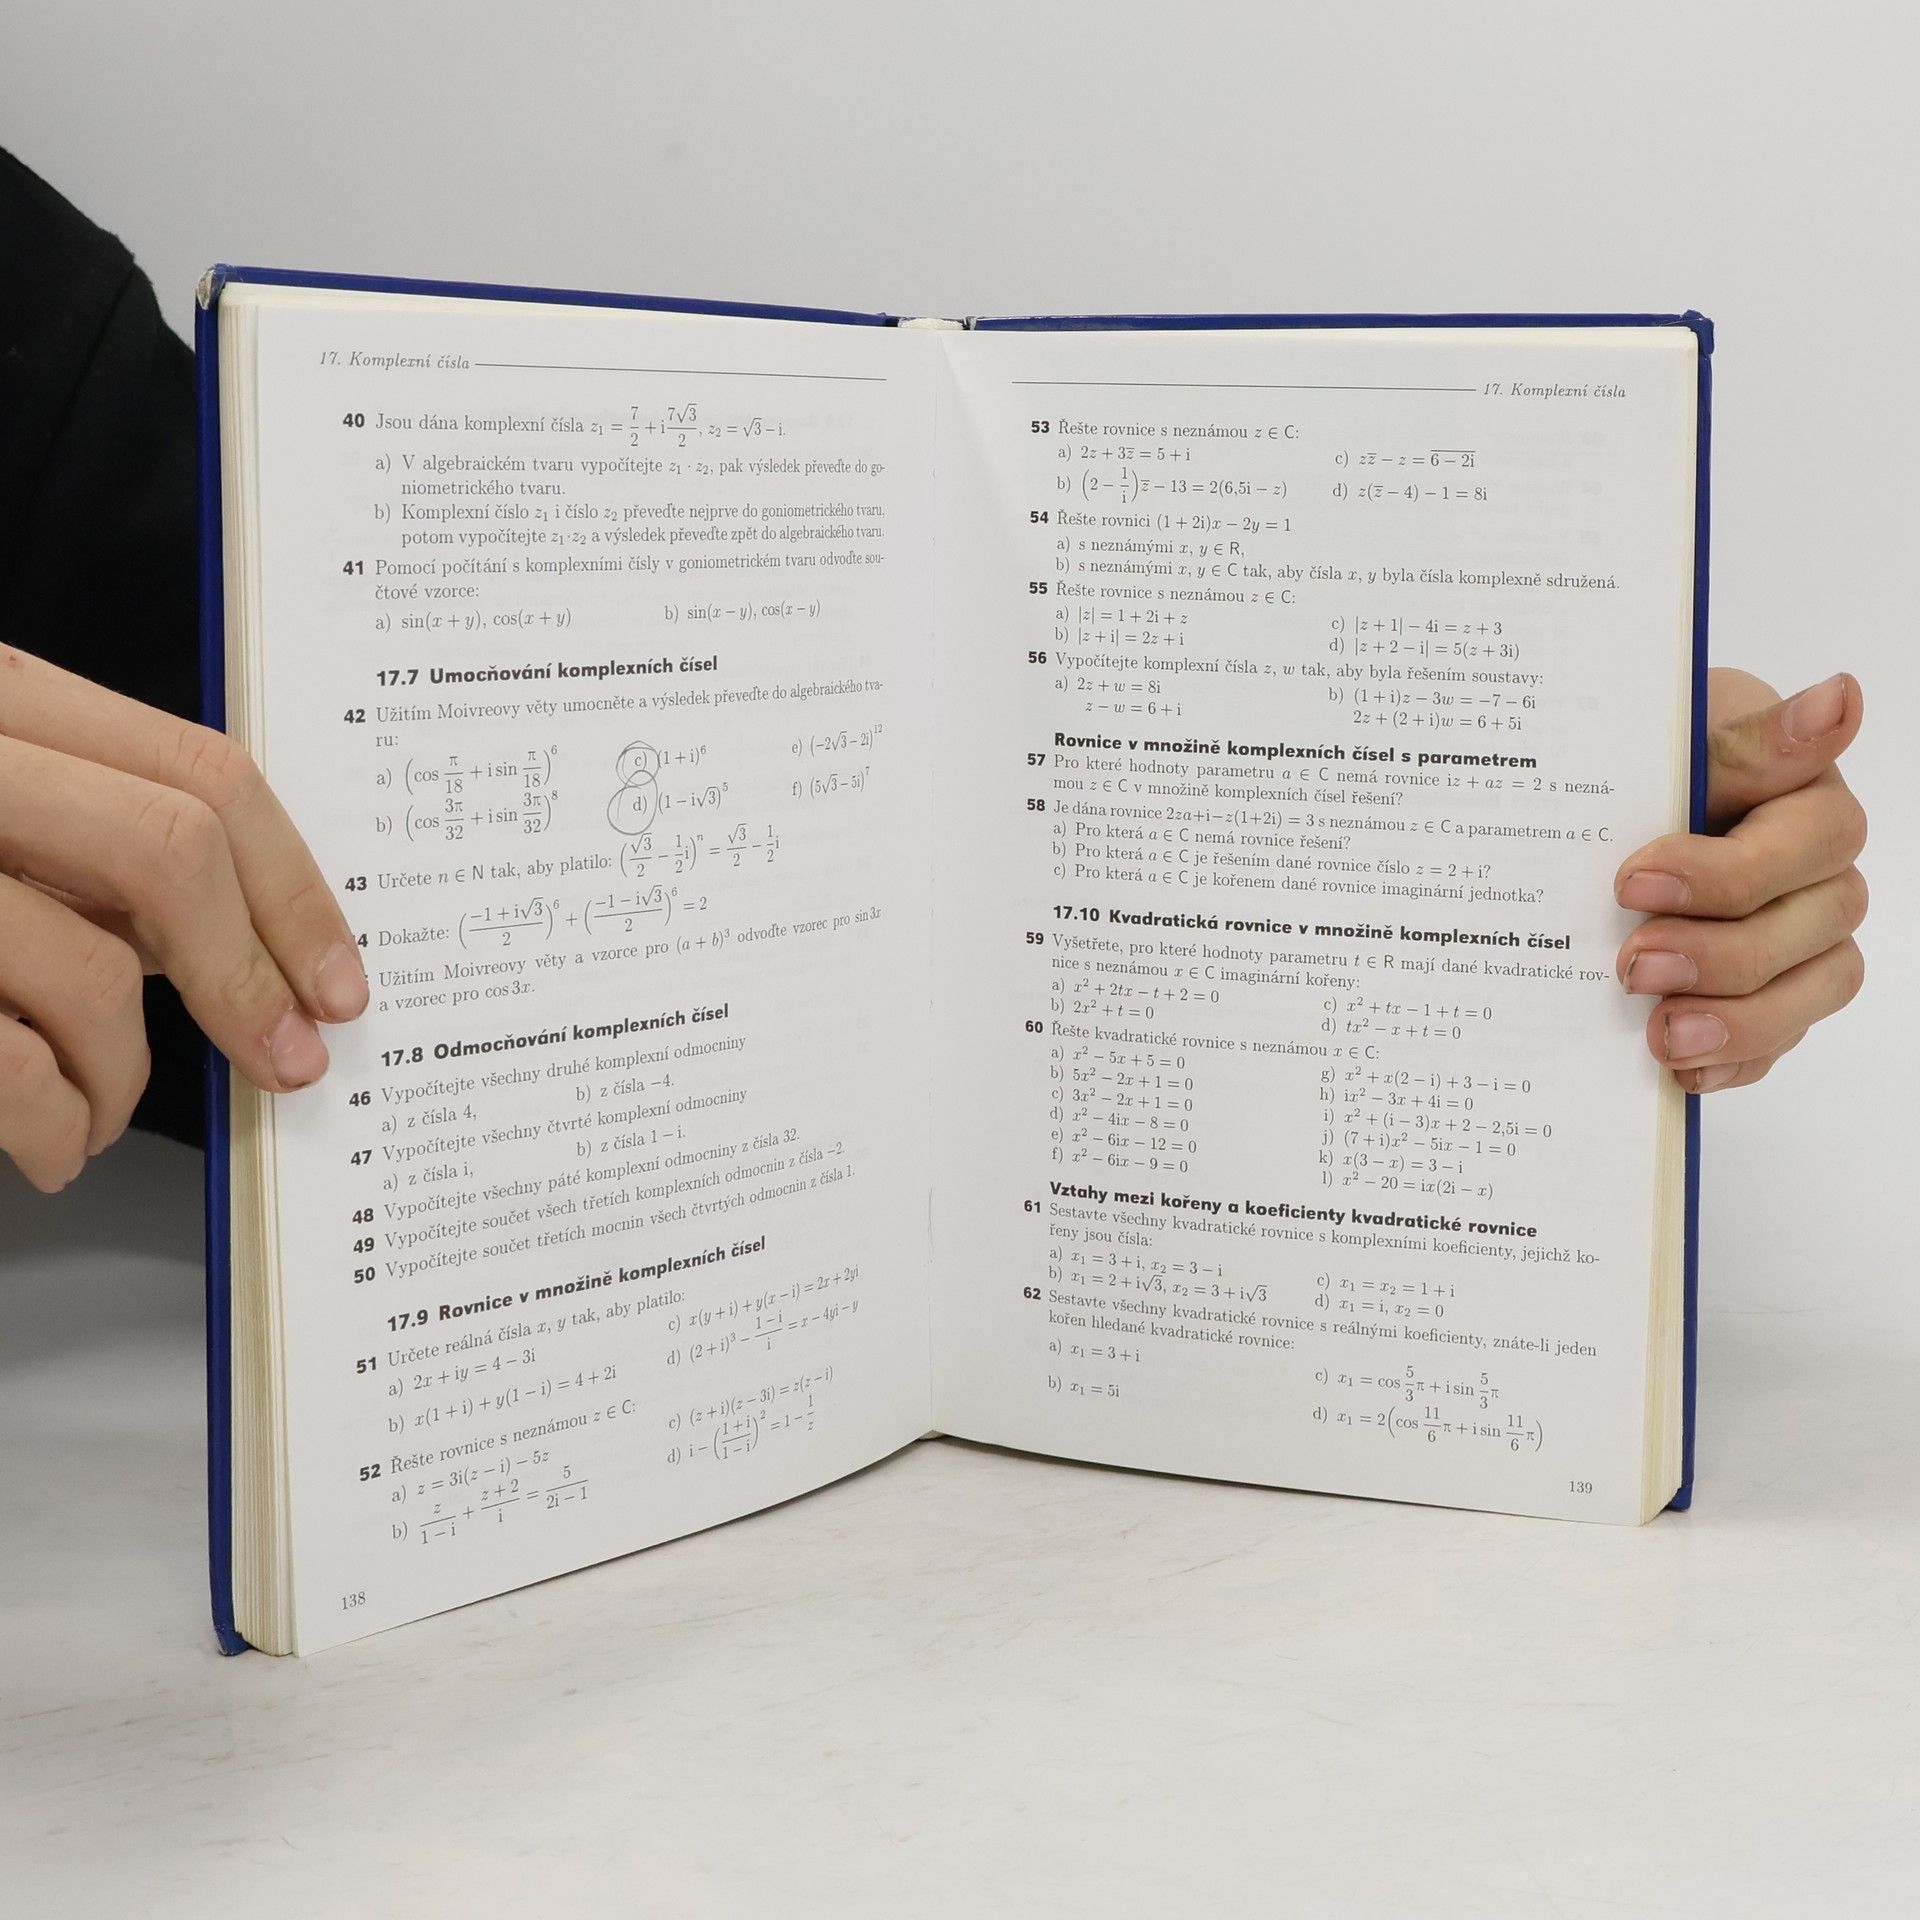 17. Komplexní čísla
40 Jsou dána komplexní čísla z₁ = 7/2 + i 7√3/2, z₂ = √3 – i.
a) V algebraickém tvaru vypočítejte z₁ · z₂, pak výsledek převeďte do go-
niometrického tvaru.
b) Komplexní číslo z₁ i číslo z₂ převeďte nejprve do goniometrického tvaru,
potom vypočítejte z₁·z₂ a výsledek převeďte zpět do algebraického tvaru.
41 Pomocí počítání s komplexními čísly v goniometrickém tvaru odvoďte sou-
čtové vzorce:
a) sin(x + y), cos(x + y) b) sin(x – y), cos(x – y)
17.7 Umocňování komplexních čísel
42 Užitím Moivreovy věty umocněte a výsledek převeďte do algebraického tva-
ru:
a) (cos π/18 + i sin π/18)⁶ c) (1 + i)⁶ e) (–2√3 – 2i)¹²
b) (cos 3π/32 + i sin 3π/32)⁸ d) (1 – i√3)⁵ f) (5√3 – 5i)⁷
43 Určete n ∈ N tak, aby platilo: (√3/2 – 1/2 i)ⁿ = √3/2 – 1/2 i
4 Dokažte: ((–1 + i√3)/2)⁶ + ((–1 – i√3)/2)⁶ = 2
Užitím Moivreovy věty a vzorce pro (a + b)³ odvoďte vzorec pro sin 3x
a vzorec pro cos 3x.
17.8 Odmocňování komplexních čísel
46 Vypočítejte všechny druhé komplexní odmocniny
a) z čísla 4, b) z čísla –4.
47 Vypočítejte všechny čtvrté komplexní odmocniny
a) z čísla i, b) z čísla 1 – i.
48 Vypočítejte všechny páté komplexní odmocniny z čísla 32.
49 Vypočítejte součet všech třetích komplexních odmocnin z čísla –2.
50 Vypočítejte součet třetích mocnin všech čtvrtých odmocnin z čísla 1.
17.9 Rovnice v množině komplexních čísel
51 Určete reálná čísla x, y tak, aby platilo:
a) 2x + iy = 4 – 3i c) x(y + i) + y(x – i) = 2x + 2yi
b) x(1 + i) + y(1 – i) = 4 + 2i d) (2 + i)³ – (1 – i)/i = x – 4yi – y
52 Řešte rovnice s neznámou z ∈ C:
a) z = 3i(z – i) – 5z c) (z + i)(z – 3i) = z(z – i)
b) z/(1 – i) + (z + 2)/i = 5/(2i – 1) d) i – ((1 + i)/(1 – i))² = 1 – 1/z
138
17. Komplexní čísla
53 Řešte rovnice s neznámou z ∈ C:
a) 2z + 3z̅ = 5 + i c) zz̅ – z = 6̅ ̅–̅ ̅2̅i̅
b) (2 – 1/i)z̅ – 13 = 2(6,5i – z) d) z(z̅ – 4) – 1 = 8i
54 Řešte rovnici (1 + 2i)x – 2y = 1
a) s neznámými x, y ∈ R,
b) s neznámými x, y ∈ C tak, aby čísla x, y byla čísla komplexně sdružená.
55 Řešte rovnice s neznámou z ∈ C:
a) |z| = 1 + 2i + z c) |z + 1| – 4i = z + 3
b) |z + i| = 2z + i d) |z + 2 – i| = 5(z + 3i)
56 Vypočítejte komplexní čísla z, w tak, aby byla řešením soustavy:
a) 2z + w = 8i b) (1 + i)z – 3w = –7 – 6i
z – w = 6 + i 2z + (2 + i)w = 6 + 5i
Rovnice v množině komplexních čísel s parametrem
57 Pro které hodnoty parametru a ∈ C nemá rovnice iz + az = 2 s nezná-
mou z ∈ C v množině komplexních čísel řešení?
58 Je dána rovnice 2za+i–z(1+2i) = 3 s neznámou z ∈ C a parametrem a ∈ C.
a) Pro která a ∈ C nemá rovnice řešení?
b) Pro která a ∈ C je řešením dané rovnice číslo z = 2 + i?
c) Pro která a ∈ C je kořenem dané rovnice imaginární jednotka?
17.10 Kvadratická rovnice v množině komplexních čísel
59 Vyšetřete, pro které hodnoty parametru t ∈ R mají dané kvadratické rov-
nice s neznámou x ∈ C imaginární kořeny:
a) x² + 2tx – t + 2 = 0 c) x² + tx – 1 + t = 0
b) 2x² + t = 0 d) tx² – x + t = 0
60 Řešte kvadratické rovnice s neznámou x ∈ C:
a) x² – 5x + 5 = 0 g) x² + x(2 – i) + 3 – i = 0
b) 5x² – 2x + 1 = 0 h) ix² – 3x + 4i = 0
c) 3x² – 2x + 1 = 0 i) x² + (i – 3)x + 2 – 2,5i = 0
d) x² – 4ix – 8 = 0 j) (7 + i)x² – 5ix – 1 = 0
e) x² – 6ix – 12 = 0 k) x(3 – x) = 3 – i
f) x² – 6ix – 9 = 0 l) x² – 20 = ix(2i – x)
Vztahy mezi kořeny a koeficienty kvadratické rovnice
61 Sestavte všechny kvadratické rovnice s komplexními koeficienty, jejichž ko-
řeny jsou čísla:
a) x₁ = 3 + i, x₂ = 3 – i c) x₁ = x₂ = 1 + i
b) x₁ = 2 + i√3, x₂ = 3 + i√3 d) x₁ = i, x₂ = 0
62 Sestavte všechny kvadratické rovnice s reálnými koeficienty, znáte-li jeden
kořen hledané kvadratické rovnice:
a) x₁ = 3 + i c) x₁ = cos 5/3 π + i sin 5/3 π
b) x₁ = 5i d) x₁ = 2(cos 11/6 π + i sin 11/6 π)
139